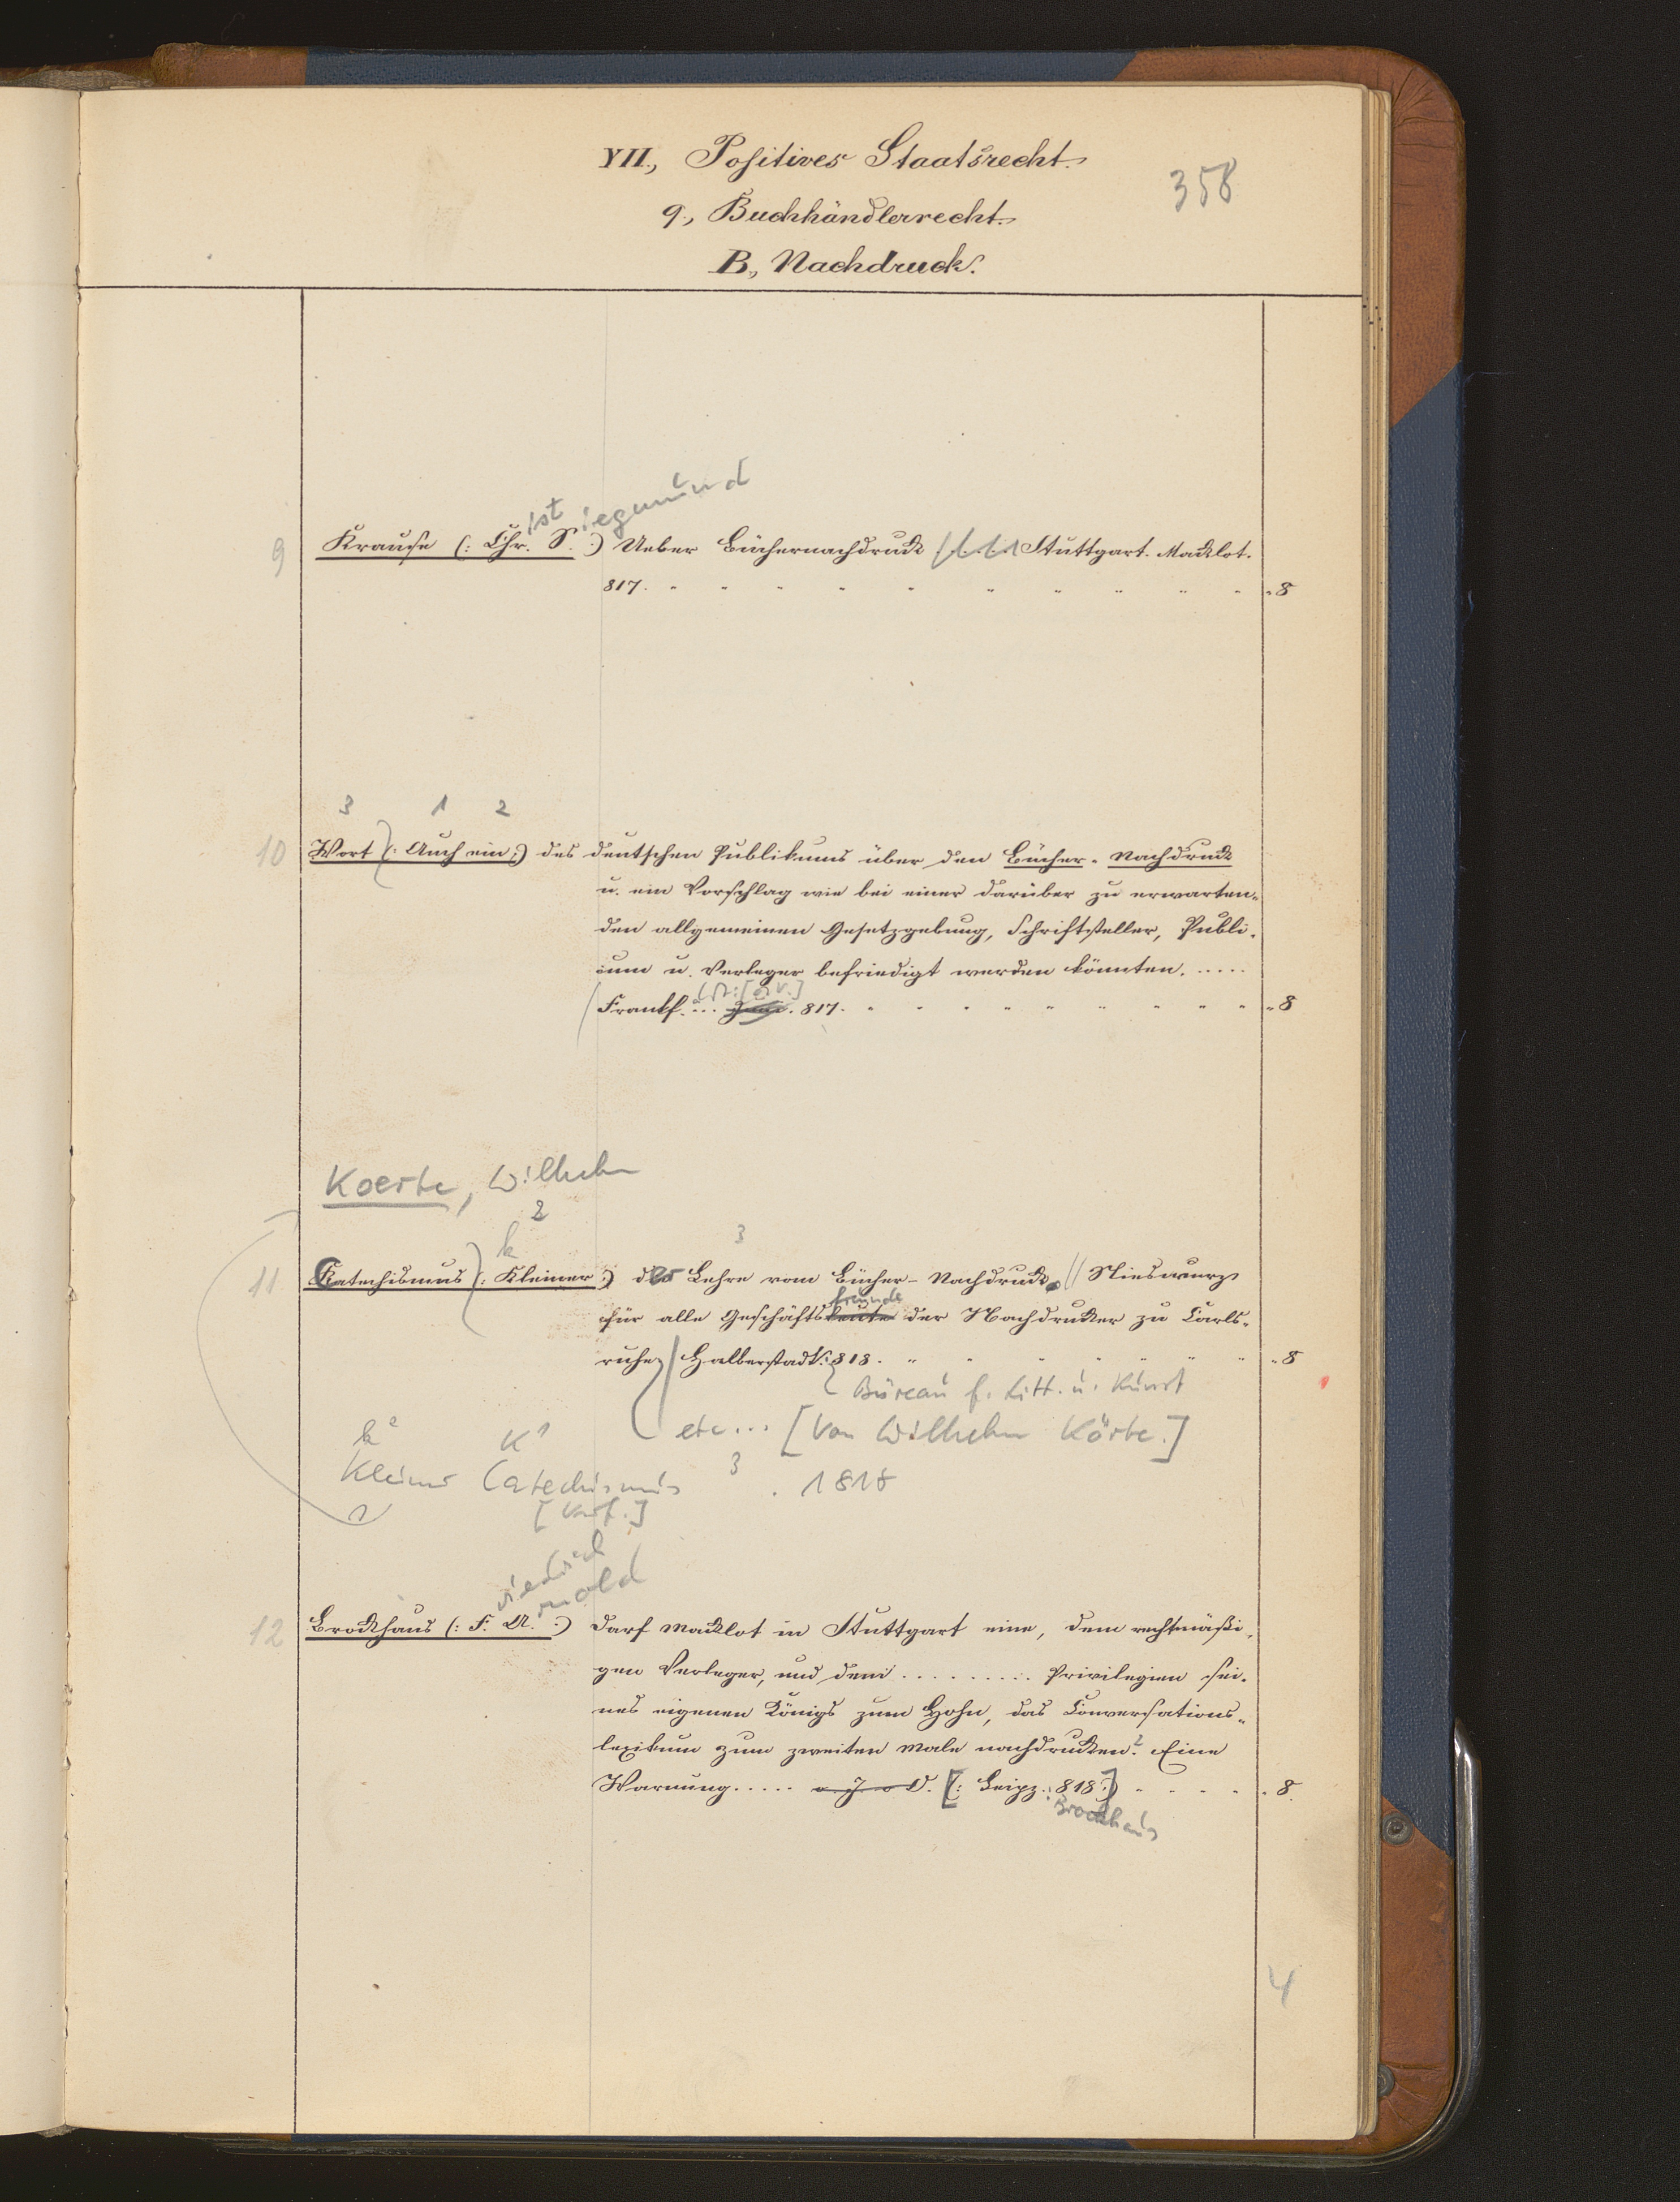 VII., Positives Staatsrecht.
358
9., Buchhändlerrecht.
B., Nachdruck.
ist iegmund
9 Krause (: Chr. S. :) Ueber Büchernachdruck Stuttgart. Macklot.
817. 8
3 1 2
10 Wort (: Auch ein :) des deutschen Publikums über den Bücher-Nachdruck
u. ein Vorschlag wie bei einer darüber zu erwarten-
den allgemeinen Gesetzgebung, Schriftsteller, Publi-
cum u. Verleger befriedigt werden könnten. .....
Frankf. ... 817. 8
Koerte, Wilhelm
2
k 3
11 Catechismus (: Kleiner :) der Lehre vom Bücher-Nachdruck. // Nieswurz
freunde
für alle Geschäftsleute der Nachdrucker zu Carls-
ruhe Halberstadt: 818. 8
Büreau f. Litt. u. Kunst
etc... [Von Wilhelm Körte.]
k 2 K 1
Kleiner Catechismus 3 . 1818
[Verf.]
riedrich
rnold
12 Brockhaus (: F. A. :) Darf Macklot in Stuttgart eine, dem rechtmäßi-
gen Verleger, und dem ......... Privilegien sei-
nes eigenen Königs zum Hohn, das Conversations-
lexikum zum zweiten Male nachdrucken? Eine
Warnung ..... o. J. o. O. [: Leipz.: 818:] 8.
Brockhaus
4